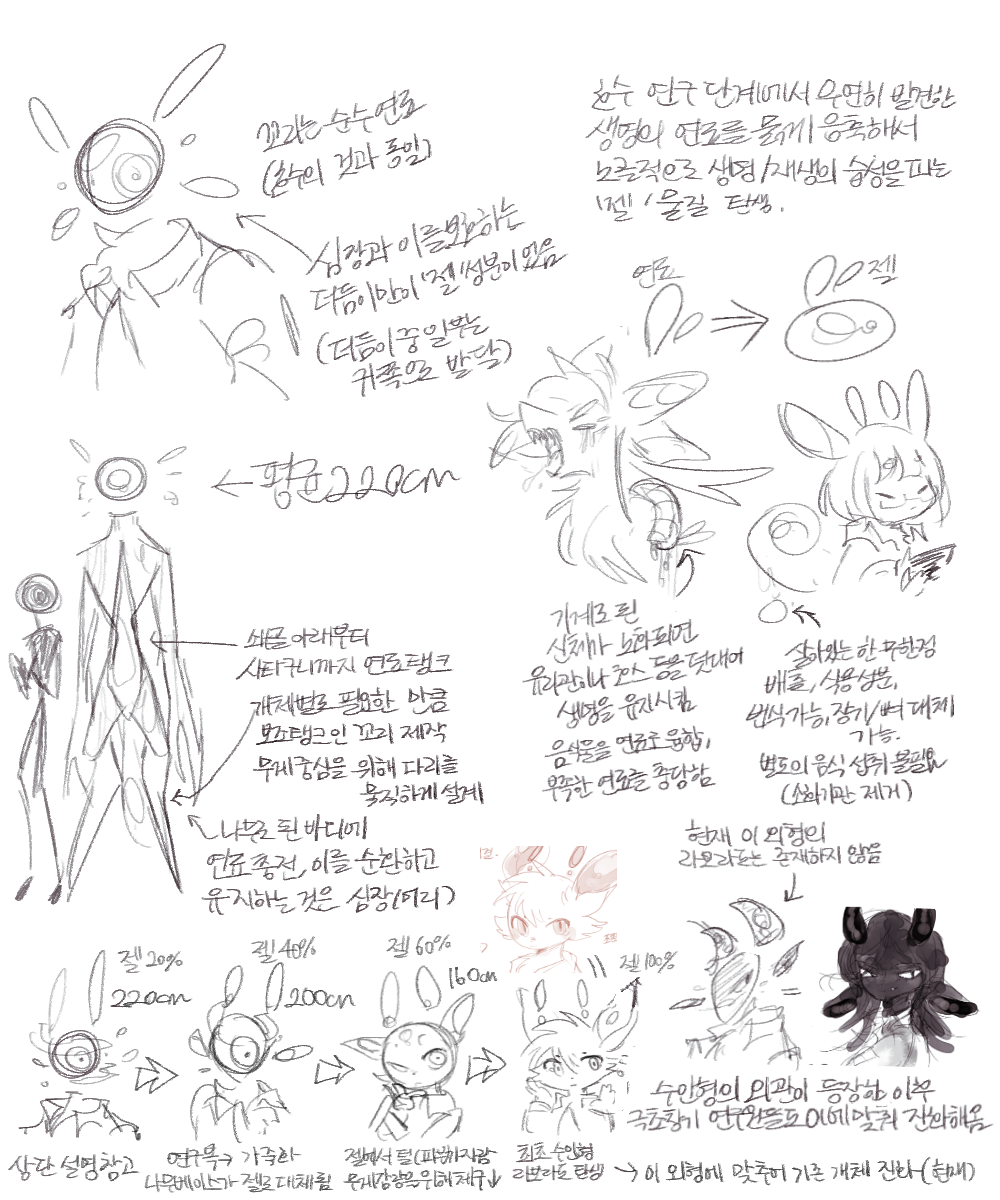 꼬리는 순수 연료
(한수의 것과 동일)
심장과 이를 보호하는
더듬이만이 '젤' 성분이 있음
(더듬이 중 일부는
귀쪽으로 발달)
한수 연구 단계에서 우연히 발견한
생명의 연료를 묽게 응축해서
노골적으로 생명/재생의 습성을 띠는
'젤' 물질 탄생.
연료
젤
← 평균 220cm
쇄골 아래부터
사타구니까지 연료탱크
개체별로 필요한 만큼
보조탱크인 꼬리 제작
무게중심을 위해 다리를
묵직하게 설계
나무로 된 바디에
연료 충전, 이를 순환하고
유지하는 것은 심장(머리)
기계로 된
신체가 노화되면
유리관이나 호스 등을 덧대어
생명을 유지시킴
음식물을 연료로 융합,
부족한 연료를 충당함
살아있는 한 무한정
배출, 식용성분,
번식 가능, 장기/뼈 대체
가능.
별도의 음식 섭취 불필요
(소화기관 제거)
현재 이 외형의
라보라토는 존재하지 않음
젤 20%
220cm
젤 40%
200cm
젤 60%
160cm
젤 100%
상단 설명참고
연구복→ 가죽화
나무베이스가 젤로 대체됨
젤에서 털(파츠)가 자람
무게감량을 위해 체구↓
최초 수인형
라보라토 탄생
수인형의 외관이 등장한 이후
극초창기 연구원들도 이에 맞춰 진화해옴
→ 이 외형에 맞추어 기존 개체 진화 (현재)